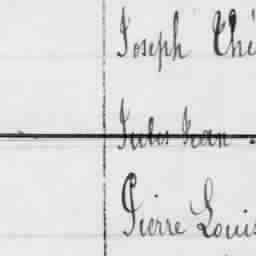 Joseph Thé
Jules Jean
Pierre Louis